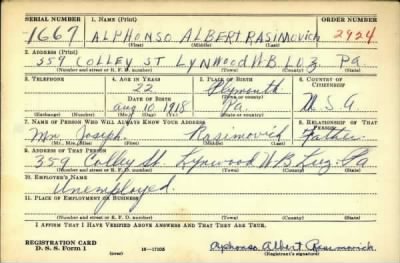 SERIAL NUMBER 1. NAME (Print) ORDER NUMBER
1667 ALPHONSO ALBERT RASIMOVICH 2924
(First) (Middle) (Last)
2. ADDRESS (Print)
359 COLLEY ST LYNWOOD W.B. LUZ. Pa.
(Number and street or R. F. D. number) (Town) (County) (State)
3. TELEPHONE 4. AGE IN YEARS 5. PLACE OF BIRTH 6. COUNTRY OF CITIZENSHIP
22 Plymouth
DATE OF BIRTH (Town or county)
Aug 10, 1918 Pa. U.S.A
(Exchange) (Number) (Mo.) (Day) (Yr.) (State or country)
7. NAME OF PERSON WHO WILL ALWAYS KNOW YOUR ADDRESS 8. RELATIONSHIP OF THAT PERSON
Mr. Joseph Rasimovich Father
(Mr., Mrs., Miss) (First) (Middle) (Last)
9. ADDRESS OF THAT PERSON
359 Colley St. Lynwood W B Luz. Pa
(Number and street or R. F. D. number) (Town) (County) (State)
10. EMPLOYER'S NAME
Unemployed.
11. PLACE OF EMPLOYMENT OR BUSINESS
(Number and street or R. F. D. number) (Town) (County) (State)
I AFFIRM THAT I HAVE VERIFIED ABOVE ANSWERS AND THAT THEY ARE TRUE.
REGISTRATION CARD
D. S. S. Form 1 (over) 16-17105 Alphonso Albert Rasimovich
(Registrant's signature)